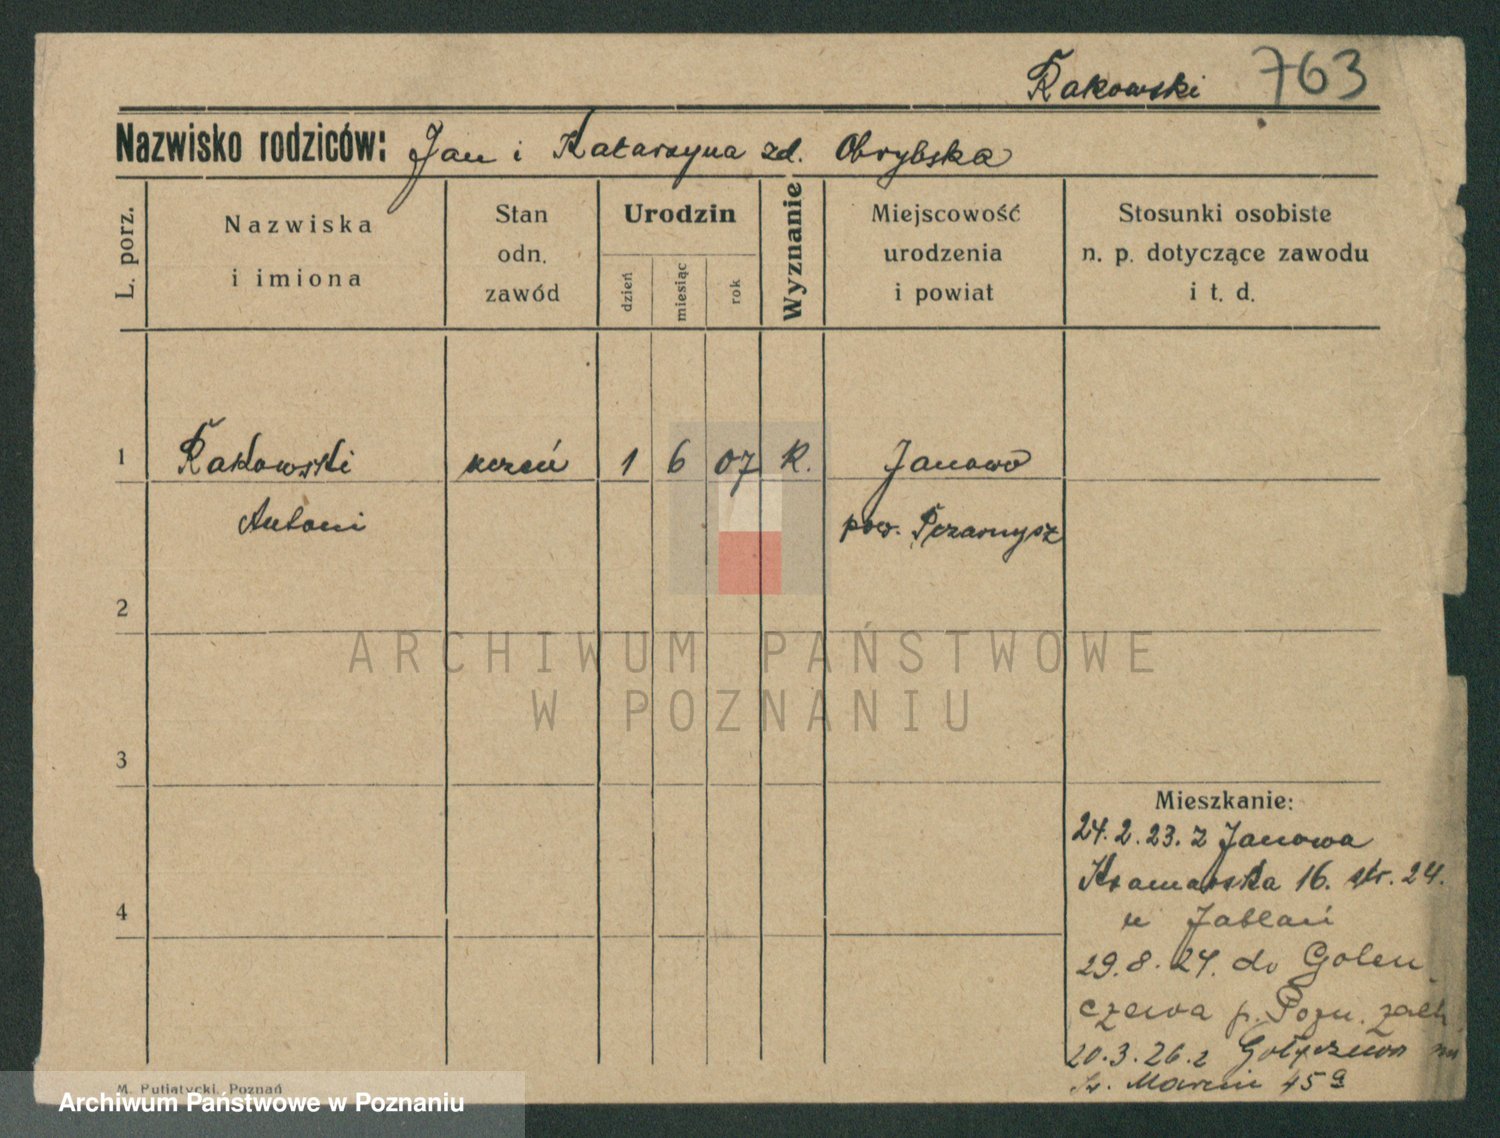 Rakowski 763
Nazwisko rodziców: Jan i Katarzyna zd. Obrybska
L. porz.
Nazwiska
i imiona
Stan
odn.
zawód
Urodzin
dzień
miesiąc
rok
Wyznanie
Miejscowość
urodzenia
i powiat
Stosunki osobiste
n. p. dotyczące zawodu
i t. d.
1 Rakowski uczeń 1 6 07 K. Janowo
Antoni pow. Przasnysz
2
ARCHIWUM PAŃSTWOWE
W POZNANIU
3
Mieszkanie:
24.2.23. z Janowa
Kramarska 16. str. 24.
4
u Jabłań
29.8.24. do Golen
czewa p. Pozn. zach
20.3.26. z Gołęczewa
Św. Marcin 45a
M. Putiatycki, Poznań
Archiwum Państwowe w Poznaniu